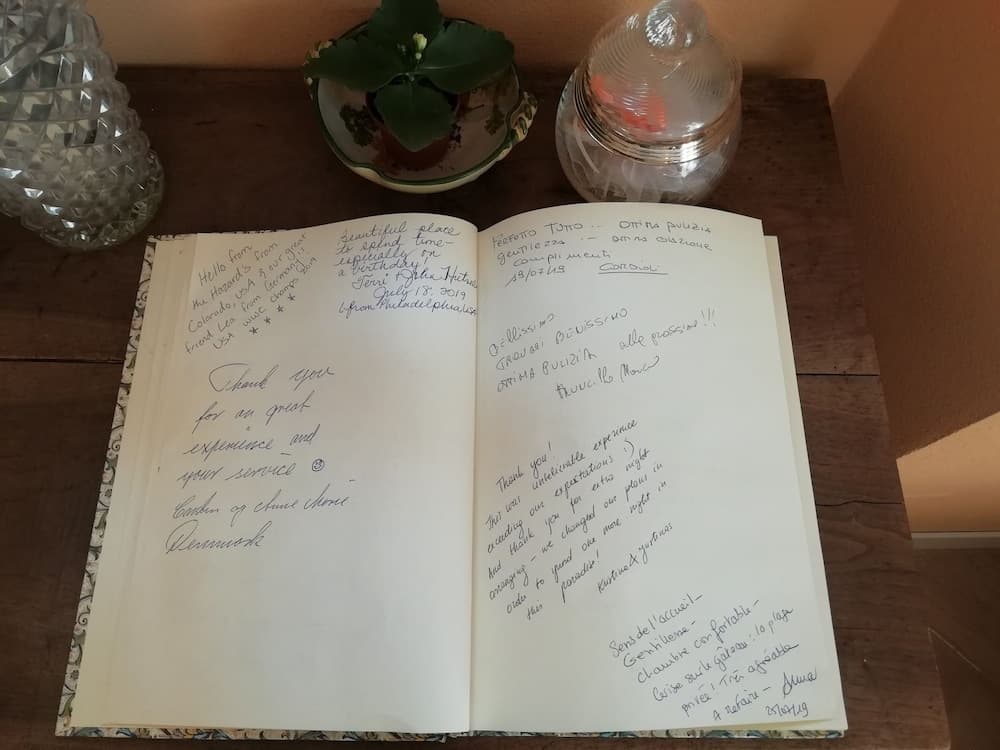 Hello from
the Hazard's from
Colorado, USA & our great
friend Lea from Germany!!
USA WWC champs 2019
Beautiful place
to spend time-
especially on
a birthday,
Terri + John
July 18, 2019
from Philadelphia USA
Thank you
for an great
experience and
your service
og Anne Marie
Denmark
PERFETTO TUTTO ... OTTIMA PULIZIA
GENTILEZZA ... OTTIMA COLAZIONE
complimenti
19/07/19
BELLISSIMO
TROVARSI BENISSIMO
OTTIMA PULIZIA alla prossima!!!
Thank you!
This was unbelievable experience
exceeding our expectations :)
And thank you for extra night
arranging - we changed our plans in
order to spend one more night in
this paradise!
Kristina & Justinas
Sens de l'accueil -
Gentillesse -
chambre confortable -
Cerise sur le gâteau : la plage
privée ! Très agréable
A refaire - Anna
25/07/19